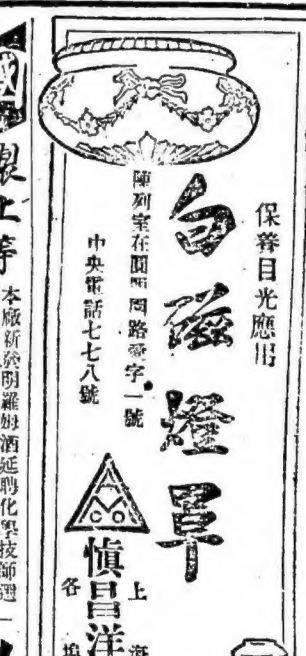 保養目光應用
白磁燈罩
陳列室在圓明園路愛字一號
中央電話七七八號
上海
慎昌洋
各埠
國
製上等
本廠新發明羅姆酒延聘化學技師選